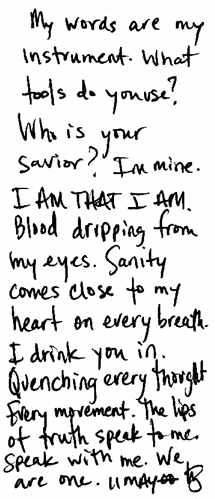 My words are my
instrument. What
tools do you use?
Who is your
savior? I'm mine.
I AM THAT I AM.
Blood dripping from
my eyes. Sanity
comes close to my
heart on every breath.
I drink you in.
Quenching every thought
Every movement. The lips
of truth speak to me.
Speak with me. We
are one.